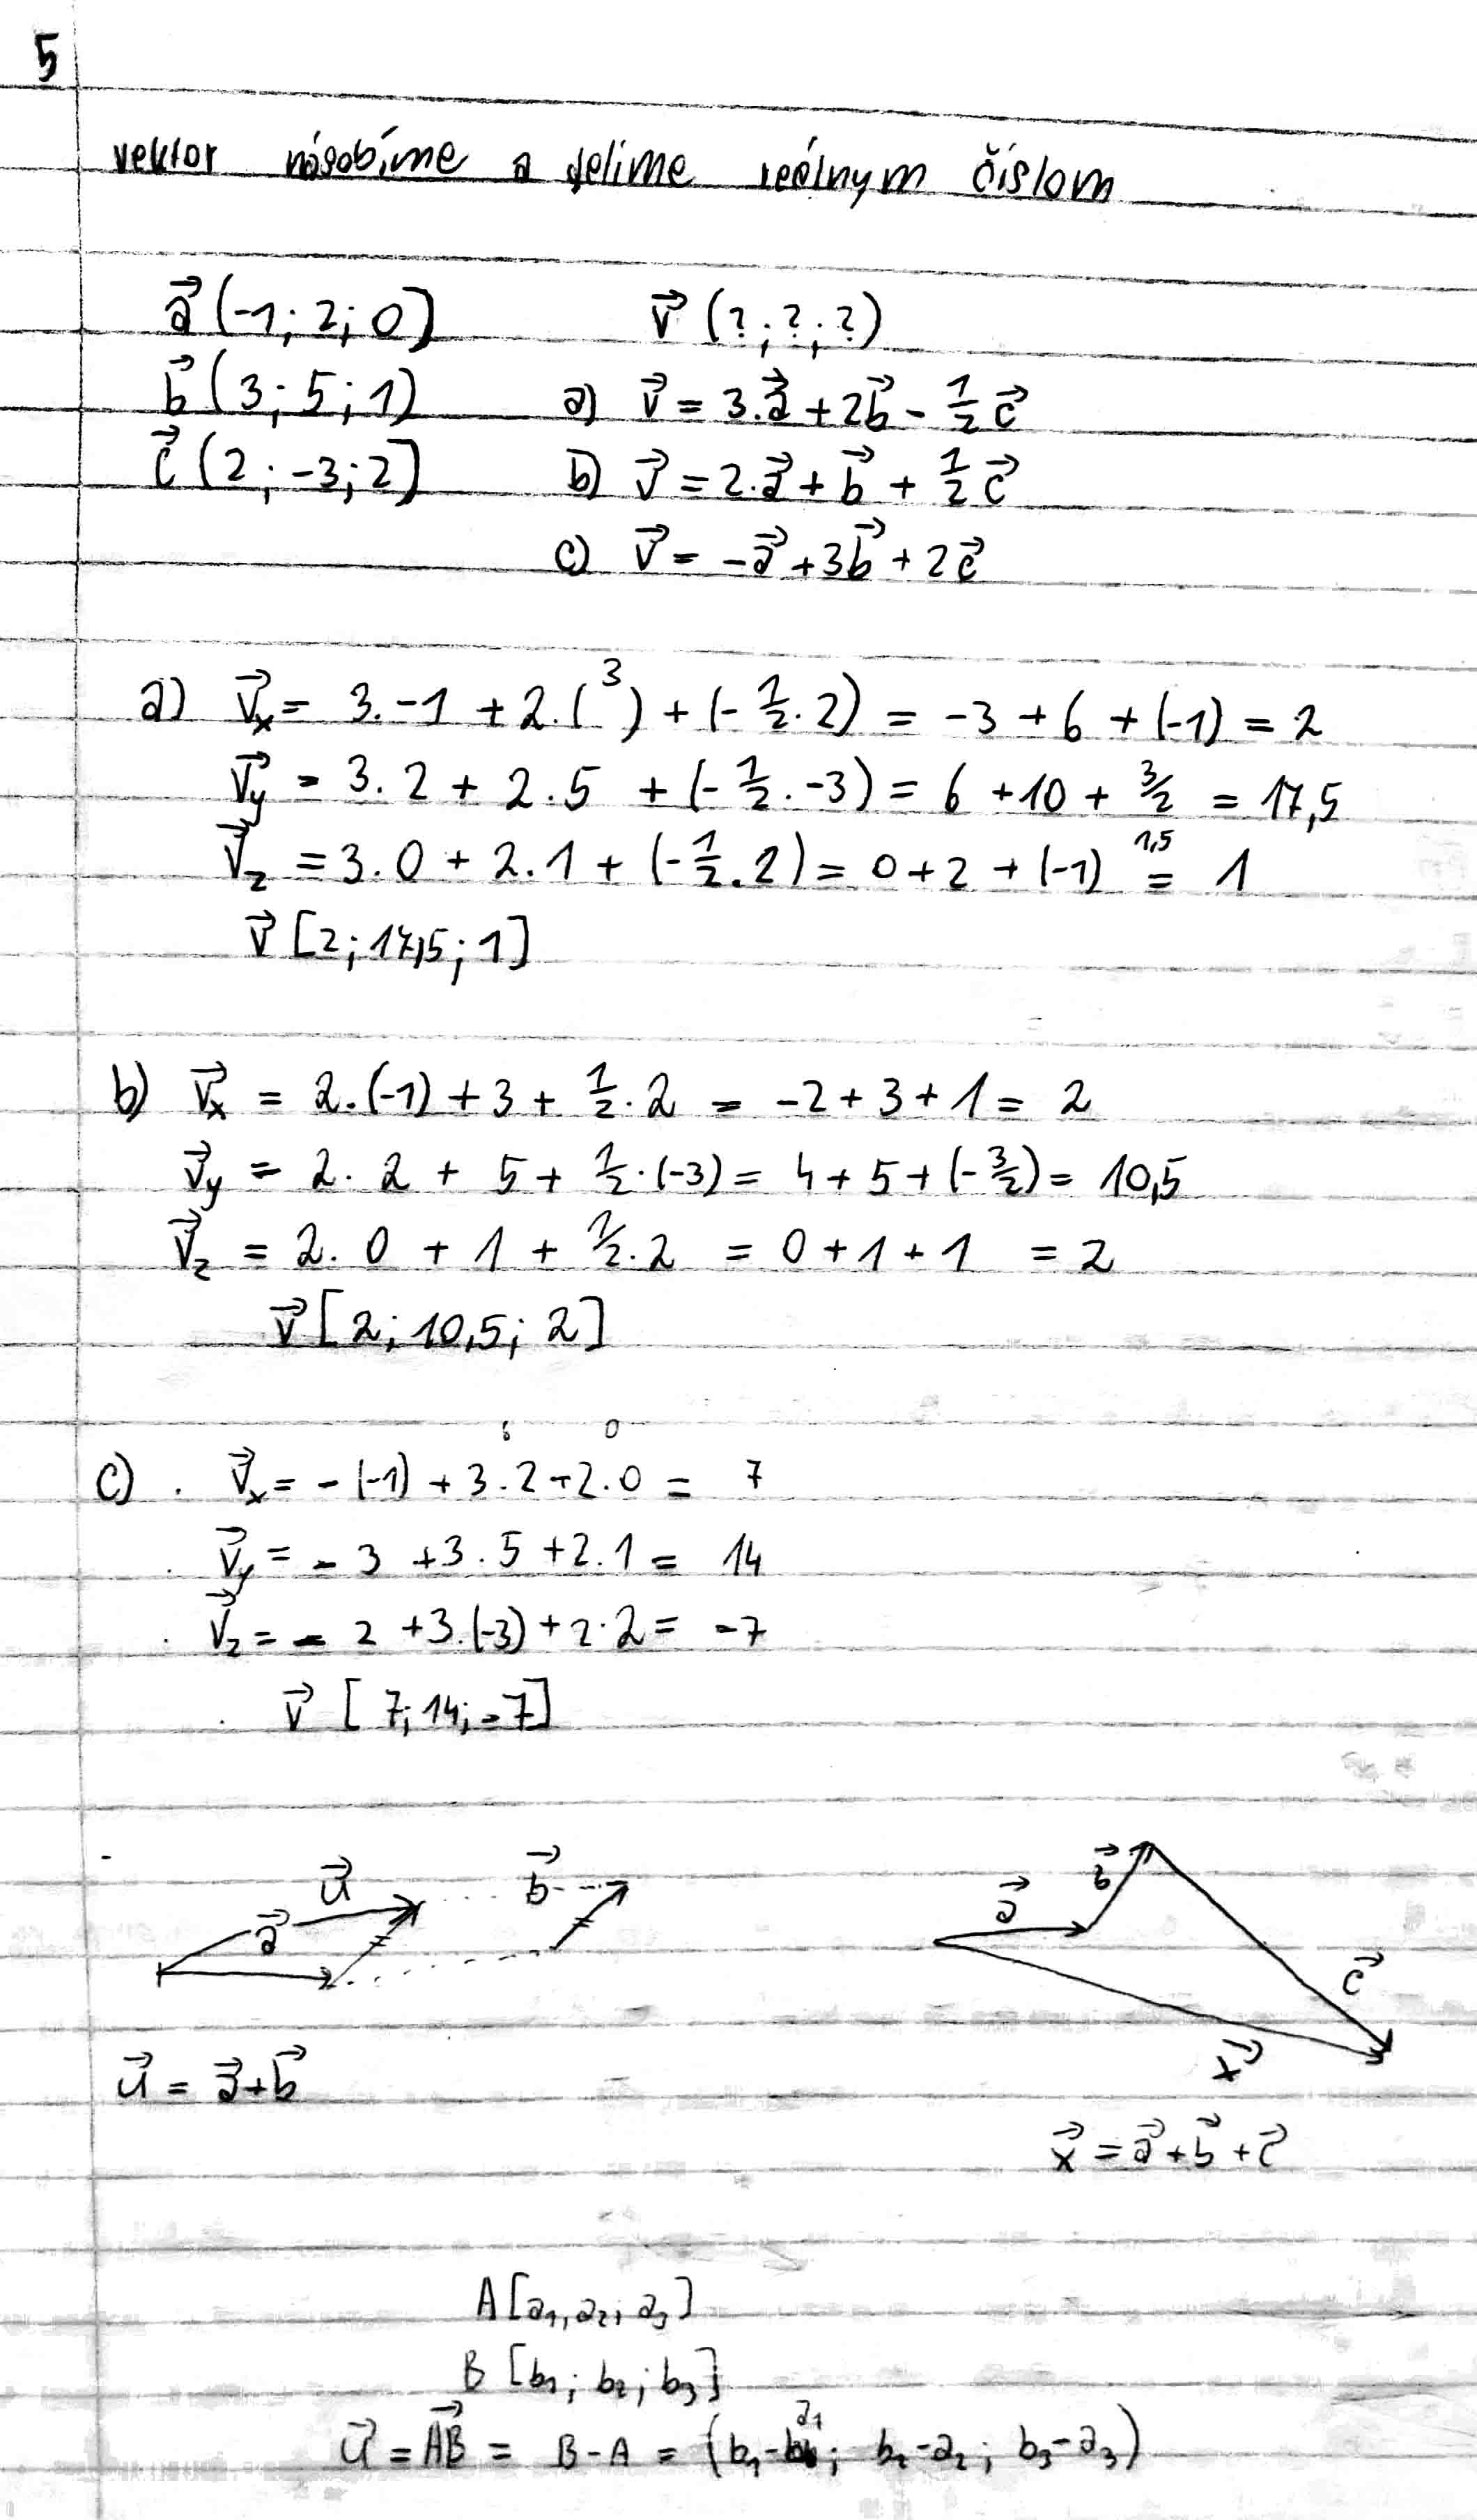 5
vektor násobíme a delíme reálnym číslom
a⃗ (-1; 2; 0]    v⃗ (?; ?; ?)
b⃗ (3; 5; 1)    a) v⃗ = 3.a⃗ + 2b⃗ - 1/2 c⃗
c⃗ (2; -3; 2]    b) v⃗ = 2.a⃗ + b⃗ + 1/2 c⃗
c) v⃗ = -a⃗ + 3b⃗ + 2c⃗
a) v⃗x = 3.-1 + 2.(3) + (-1/2 . 2) = -3 + 6 + (-1) = 2
v⃗y = 3.2 + 2.5 + (-1/2 . -3) = 6 + 10 + 3/2 = 17,5
1,5
v⃗z = 3.0 + 2.1 + (-1/2 . 2) = 0 + 2 + (-1) = 1
v⃗ [2; 17,5; 1]
b) v⃗x = 2.(-1) + 3 + 1/2 . 2 = -2 + 3 + 1 = 2
v⃗y = 2.2 + 5 + 1/2 . (-3) = 4 + 5 + (-3/2) = 10,5
v⃗z = 2.0 + 1 + 1/2 . 2 = 0 + 1 + 1 = 2
v⃗ [2; 10,5; 2]
0
c) v⃗x = -(-1) + 3.2 + 2.0 = 7
v⃗y = -3 + 3.5 + 2.1 = 14
v⃗z = -2 + 3.(-3) + 2.2 = -7
v⃗ [7; 14; -7]
u⃗ a⃗ b⃗
a⃗ b⃗ c⃗ x⃗
u⃗ = a⃗ + b⃗
x⃗ = a⃗ + b⃗ + c⃗
A [a₁, a₂, a₃]
B [b₁; b₂; b₃]
u⃗ = AB⃗ = B - A = (b₁ - a₁; b₂ - a₂; b₃ - a₃)